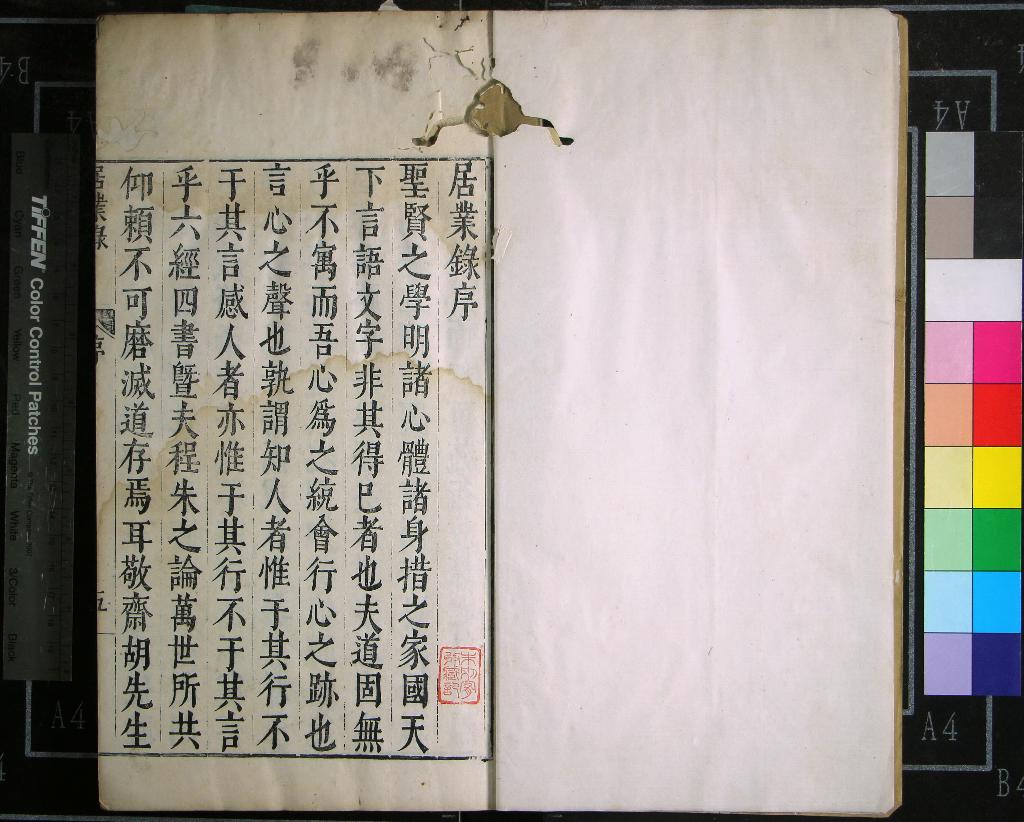 居業錄序
聖賢之學明諸心體諸身措之家國天
下言語文字非其得已者也夫道固無
乎不寓而吾心爲之統會行心之跡也
言心之聲也孰謂知人者惟于其行不
于其言感人者亦惟于其行不于其言
乎六經四書曁夫程朱之論萬世所共
仰頼不可磨滅道存焉耳敬齋胡先生
居業錄
序
五
TIFFEN Color Control Patches
Blue
Cyan
Green
Yellow
Red
Magenta
White
3/Color
Black
A4
A4
A4
A4
B4
B4